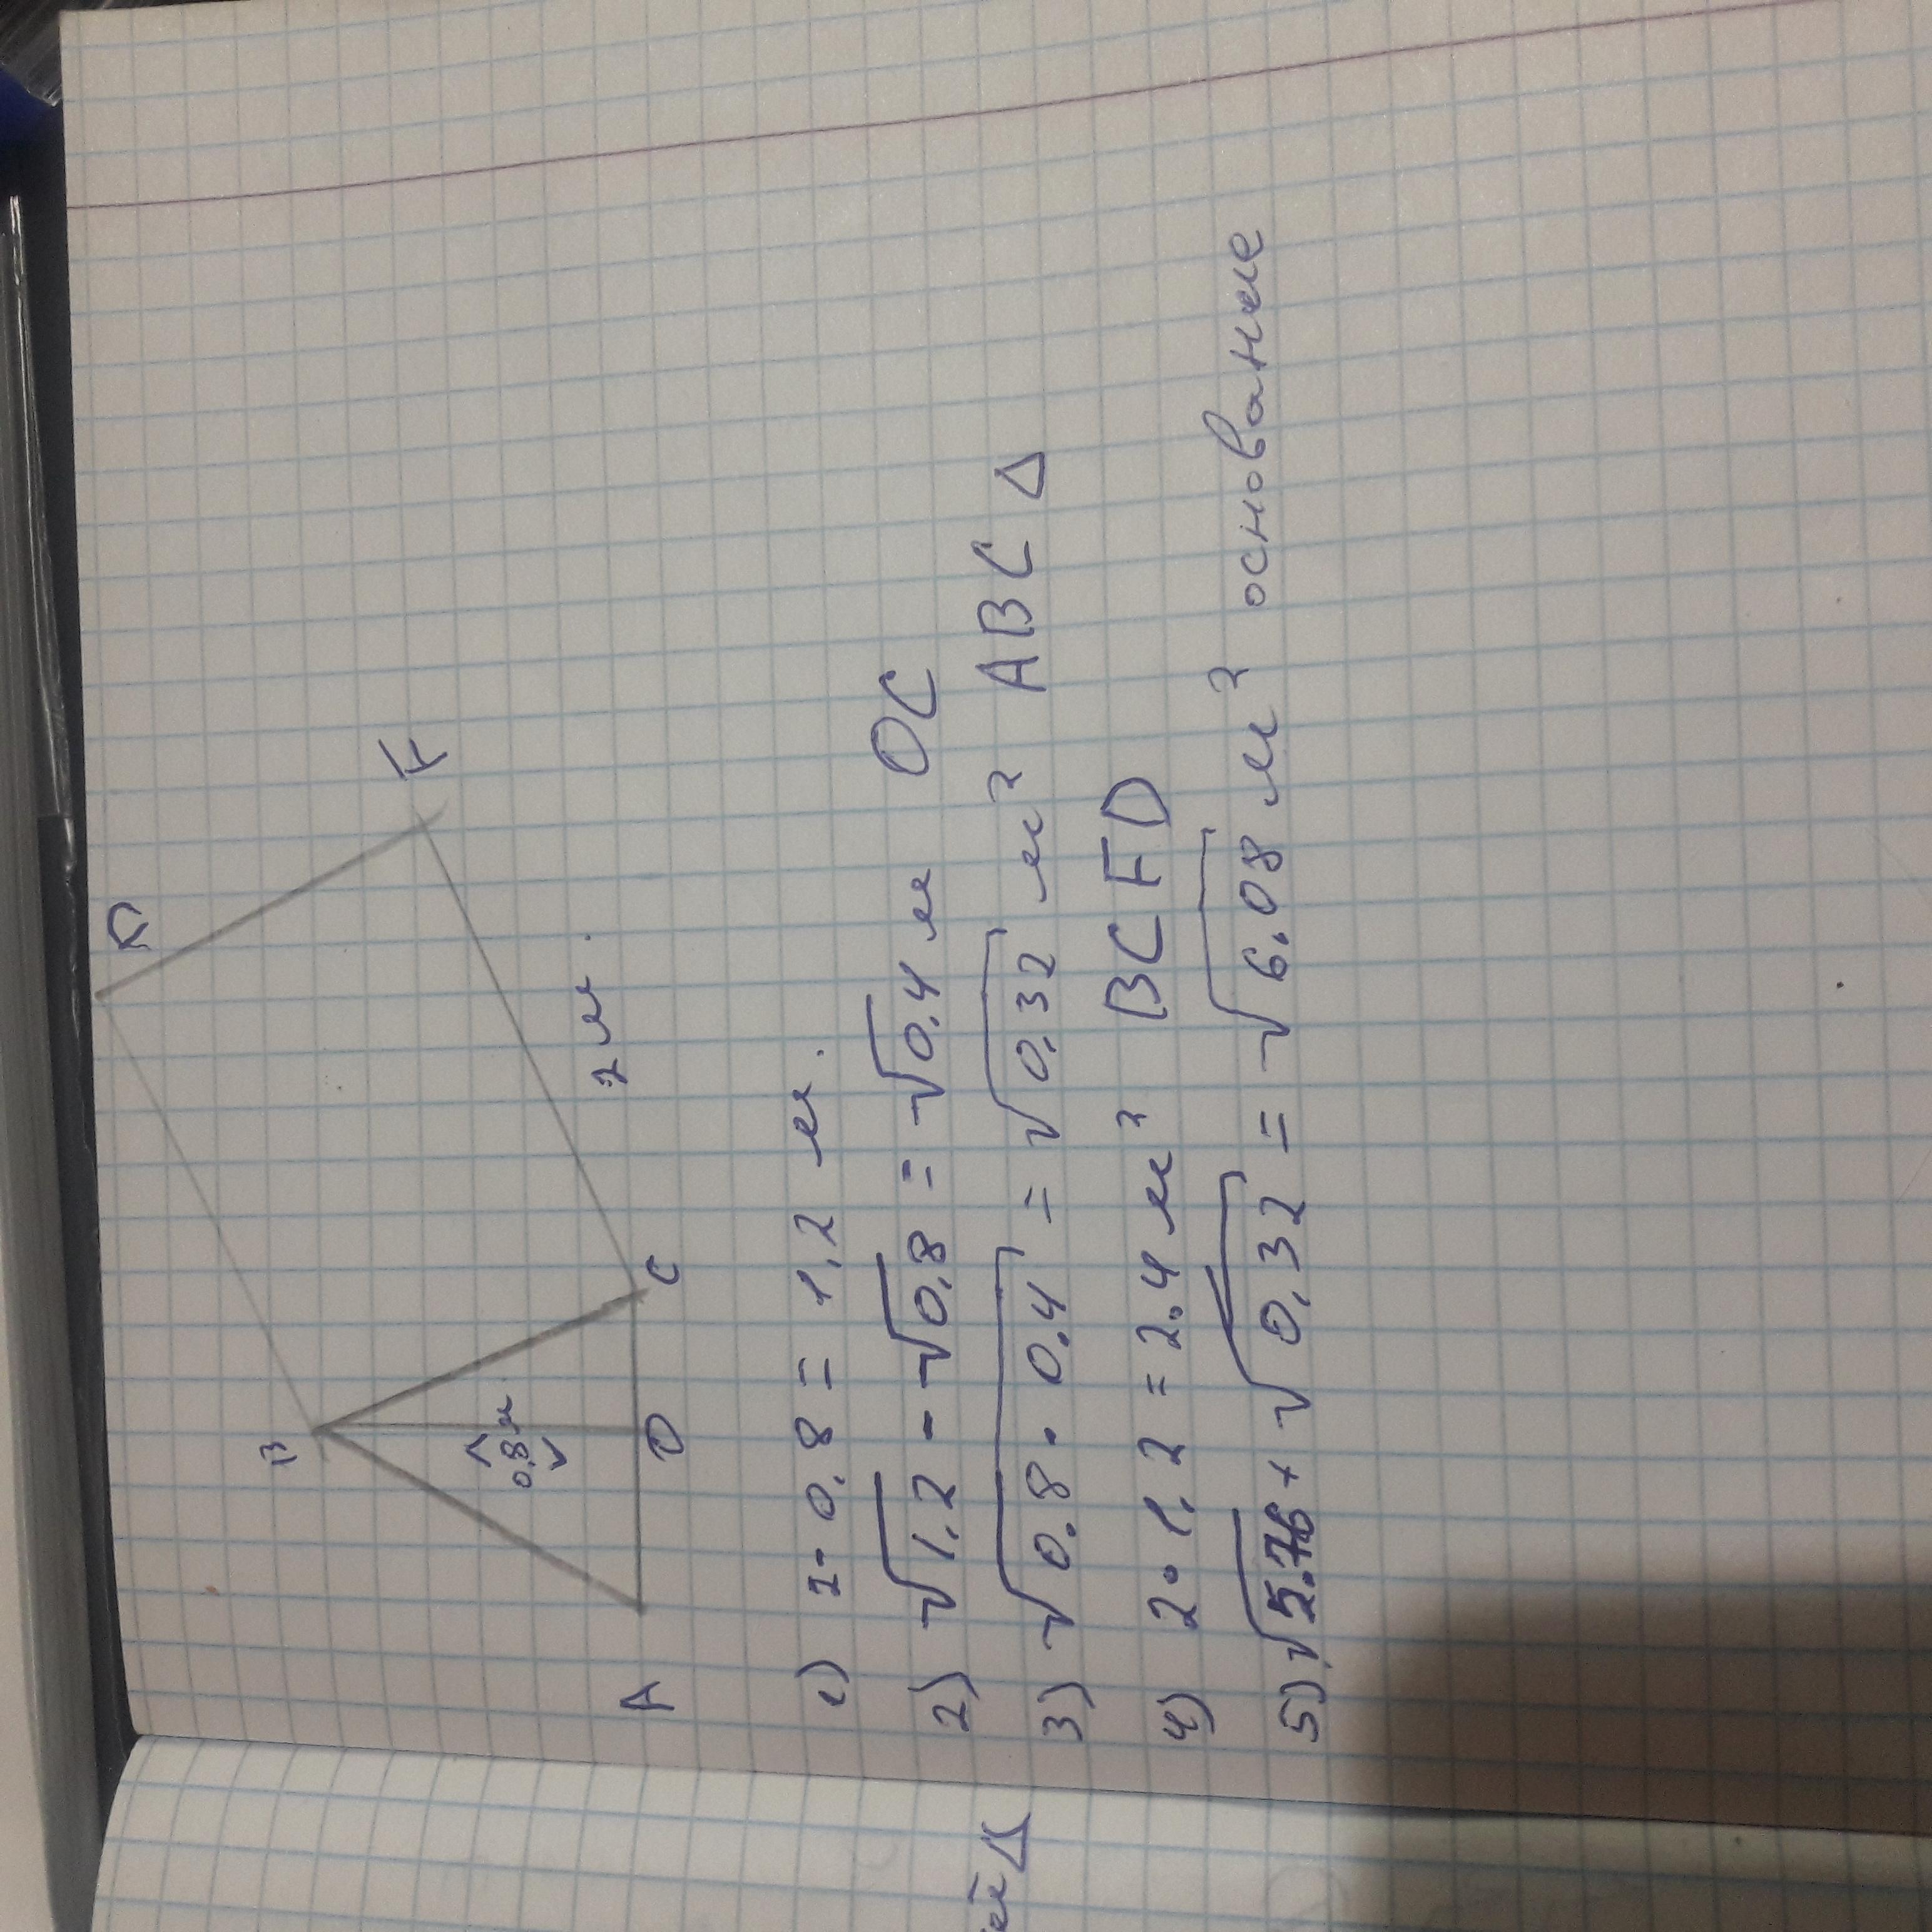 D
F
B
0,8 м.
2 м.
A
O
C
1) 2 - 0,8 = 1,2 м.
2) √1,2 - √0,8 = √0,4 м OC
3) √0.8 · 0.4 = √0,32 м² ABC Δ
4) 2 · 1,2 = 2.4 м² BCFD
5) √5.76 + √0,32 = √6.08 м² основание
ей Δ